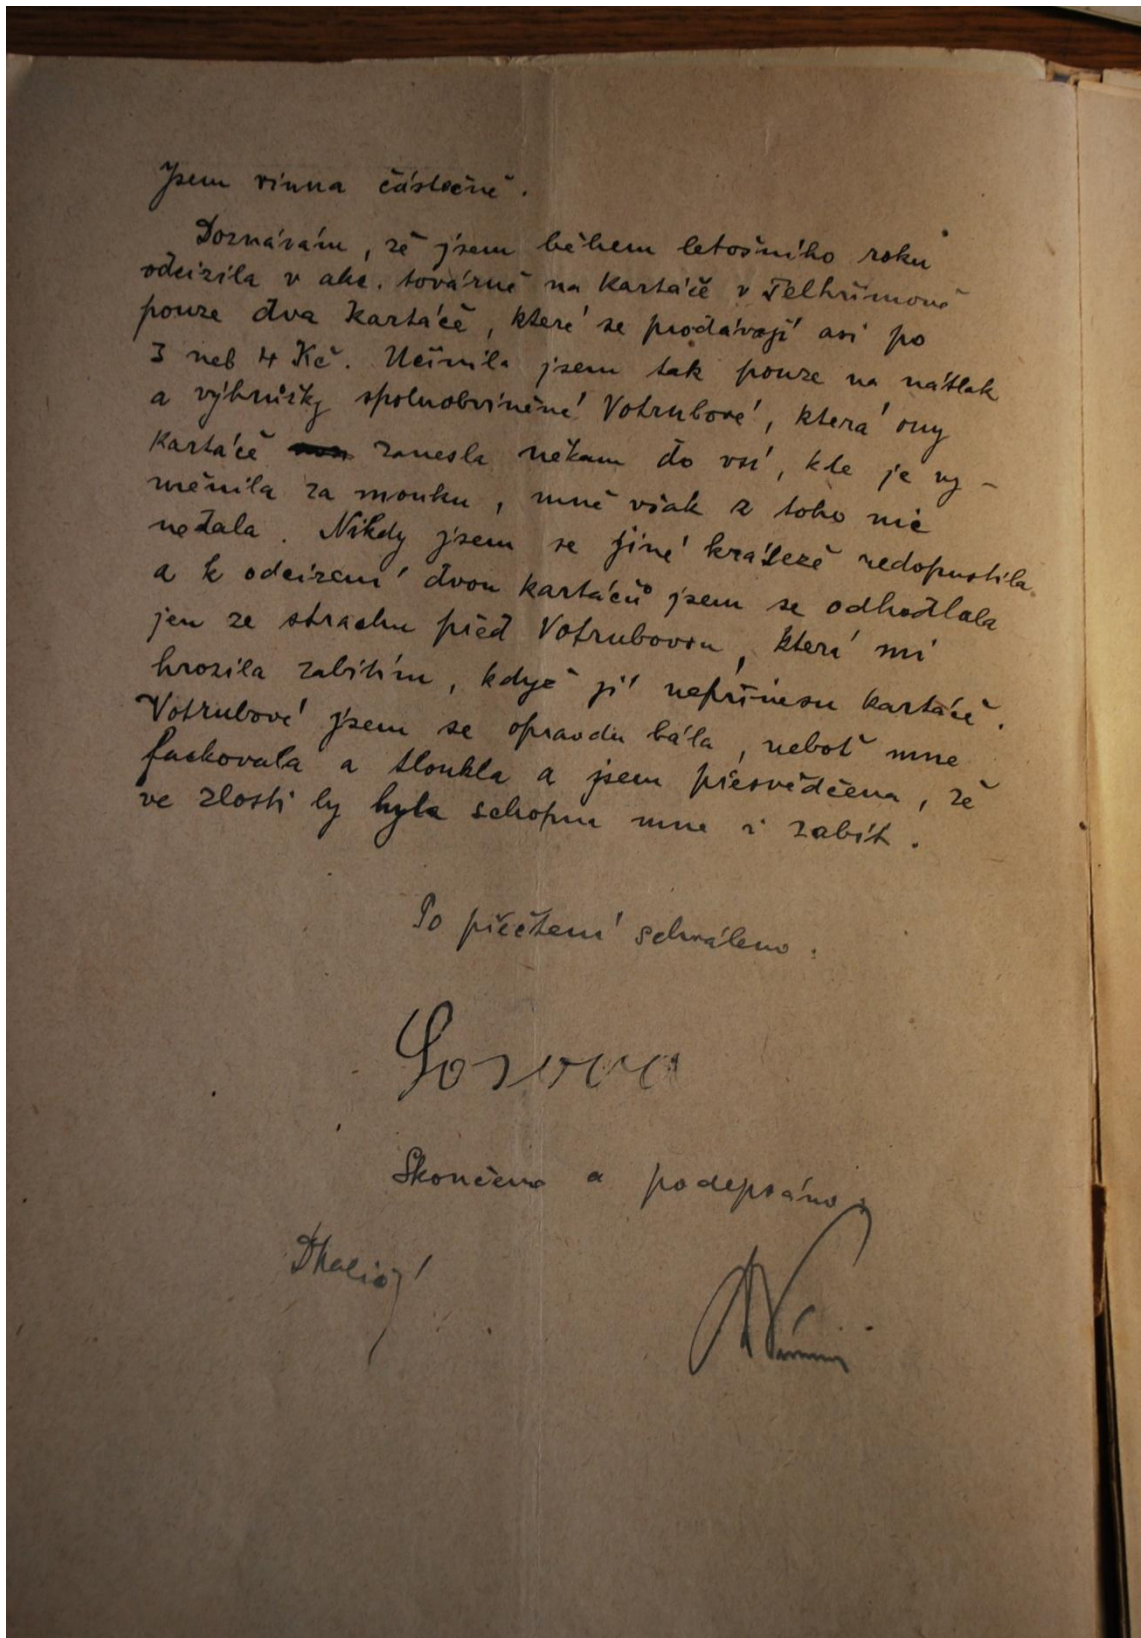 Jsem vinna částečně.
Doznávám, že jsem během letošního roku
odcizila v akc. továrně na kartáče v Pelhřimově
pouze dva kartáče, které se prodávají asi po
3 neb 4 Kč. Učinila jsem tak pouze na nátlak
a výhrůžky spoluobviněné Votrubové, která ony
kartáče zanesla někam do vsi, kde je vy-
měnila za mouku, mně však z toho nic
nedala. Nikdy jsem se jiné krádeže nedopustila
a k odcizení dvou kartáčů jsem se odhodlala
jen ze strachu před Votrubovou, která mi
hrozila zabitím, když jí nepřinesu kartáče.
Votrubové jsem se opravdu bála, neboť mne
fackovala a tloukla a jsem přesvědčena, že
ve zlosti by byla schopna mne i zabít.
Po přečtení schváleno.
Skončeno a podepsáno.